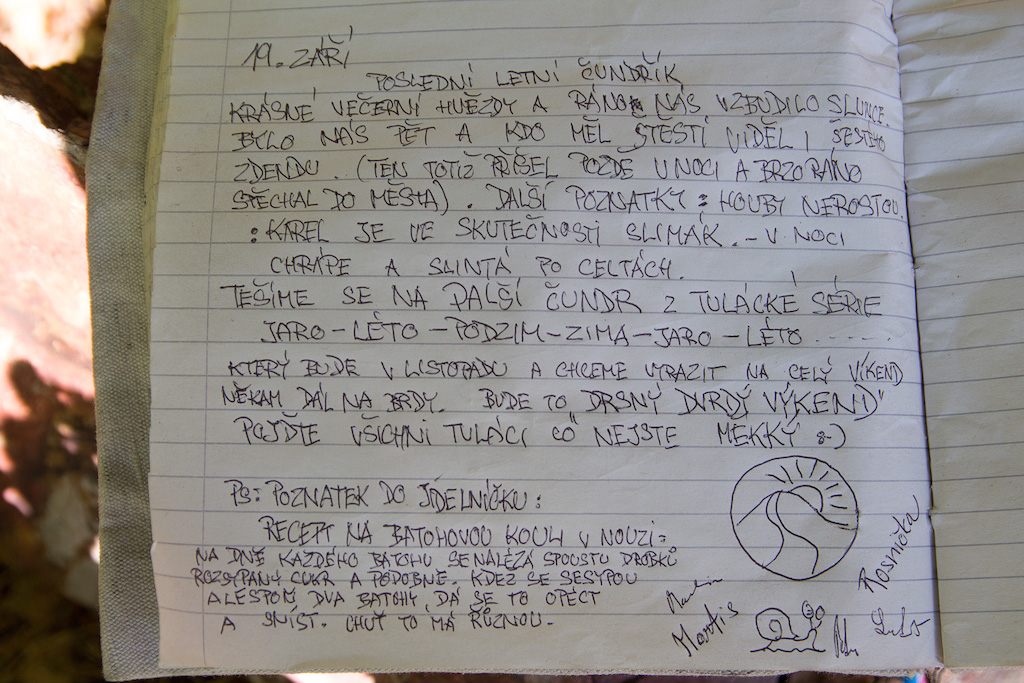 19. ZÁŘÍ
POSLEDNÍ LETNÍ ČUNDŘÍK
KRÁSNÉ VEČERNÍ HVĚZDY A RÁNO NÁS VZBUDILO SLUNCE.
BYLO NÁS PĚT A KDO MĚL ŠTĚSTÍ VIDĚL I ŠESTÉHO
ZDENDU. (TEN TOTIŽ PŘIŠEL POZDĚ V NOCI A BRZO RÁNO
SPĚCHAL DO MĚSTA). DALŠÍ POZNATKY : HOUBY NEROSTOU.
: KAREL JE VE SKUTEČNOSTI SLIMÁK. - V NOCI
CHRÁPE A SLINTÁ PO CELTÁCH.
TĚŠÍME SE NA DALŠÍ ČUNDR Z TULÁCKÉ SÉRIE
JARO - LÉTO - PODZIM - ZIMA - JARO - LÉTO .....
KTERÝ BUDE V LISTOPADU A CHCEME VYRAZIT NA CELÝ VÍKEND
NĚKAM DÁL NA BRDY. BUDE TO „DRSNÝ DVRDÝ VÝKEND"
POJĎTE VŠICHNI TULÁCI CO NEJSTE MĚKKÝ :-)
PS: POZNATEK DO JÍDELNÍČKU :
RECEPT NA BATOHOVOU KOULI V NOUZI :
NA DNĚ KAŽDÉHO BATOHU SE NALÉZÁ SPOUSTU DROBKŮ
ROZSYPANÝ CUKR A PODOBNĚ. KDYŽ SE SESYPOU
ALESPOŇ DVA BATOHY, DÁ SE TO OPÉCT
A SNÍST. CHUŤ TO MÁ RŮZNOU.
Rosnička